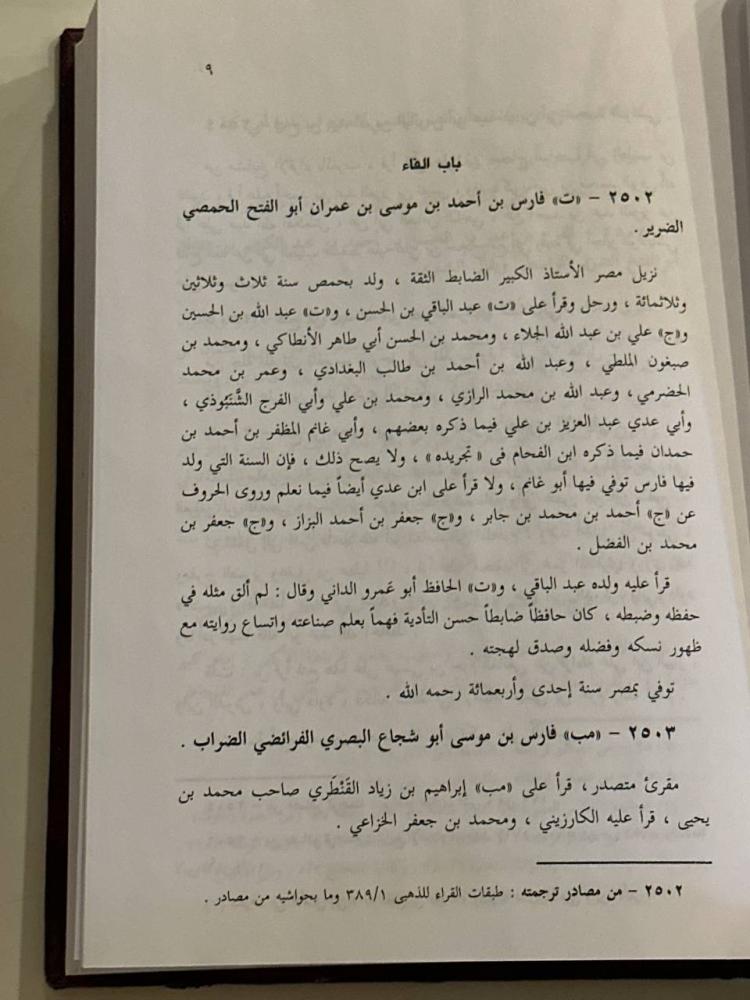 ٩
باب الفاء
٢٥٠٢ – «ت» فارس بن أحمد بن موسى بن عمران أبو الفتح الحمصي
الضرير .
نزيل مصر الأستاذ الكبير الضابط الثقة ، ولد بحمص سنة ثلاث وثلاثين
وثلاثمائة ، ورحل وقرأ على «ت» عبد الباقي بن الحسن ، و«ت» عبد الله بن الحسين
و«ج» علي بن عبد الله الجلاء ، ومحمد بن الحسن أبي طاهر الأنطاكي ، ومحمد بن
صبغون الملطي ، وعبد الله بن أحمد بن طالب البغدادي ، وعمر بن محمد
الحضرمي ، وعبد الله بن محمد الرازي ، ومحمد بن علي وأبي الفرج الشَّنَبُوذي ،
وأبي عدي عبد العزيز بن علي فيما ذكره بعضهم ، وأبي غانم المظفر بن أحمد بن
حمدان فيما ذكره ابن الفحام فى « تجريده » ، ولا يصح ذلك ، فإن السنة التي ولد
فيها فارس توفي فيها أبو غانم ، ولا قرأ على ابن عدي أيضاً فيما نعلم وروى الحروف
عن «ج» أحمد بن محمد بن جابر ، و«ج» جعفر بن أحمد البزاز ، و«ج» جعفر بن
محمد بن الفضل .
قرأ عليه ولده عبد الباقي ، و«ت» الحافظ أبو عَمرو الداني وقال : لم ألق مثله في
حفظه وضبطه ، كان حافظاً ضابطاً حسن التأدية فهماً بعلم صناعته واتساع روايته مع
ظهور نسكه وفضله وصدق لهجته .
توفي بمصر سنة إحدى وأربعمائة رحمه الله .
٢٥٠٣ – «مب» فارس بن موسى أبو شجاع البصري الفرائضي الضراب .
مقرئ متصدر ، قرأ على «مب» إبراهيم بن زياد القَنْطَري صاحب محمد بن
يحيى ، قرأ عليه الكارزيني ، ومحمد بن جعفر الخزاعي .
٢٥٠٢ – من مصادر ترجمته : طبقات القراء للذهبى ٣٨٩/١ وما بحواشيه من مصادر .